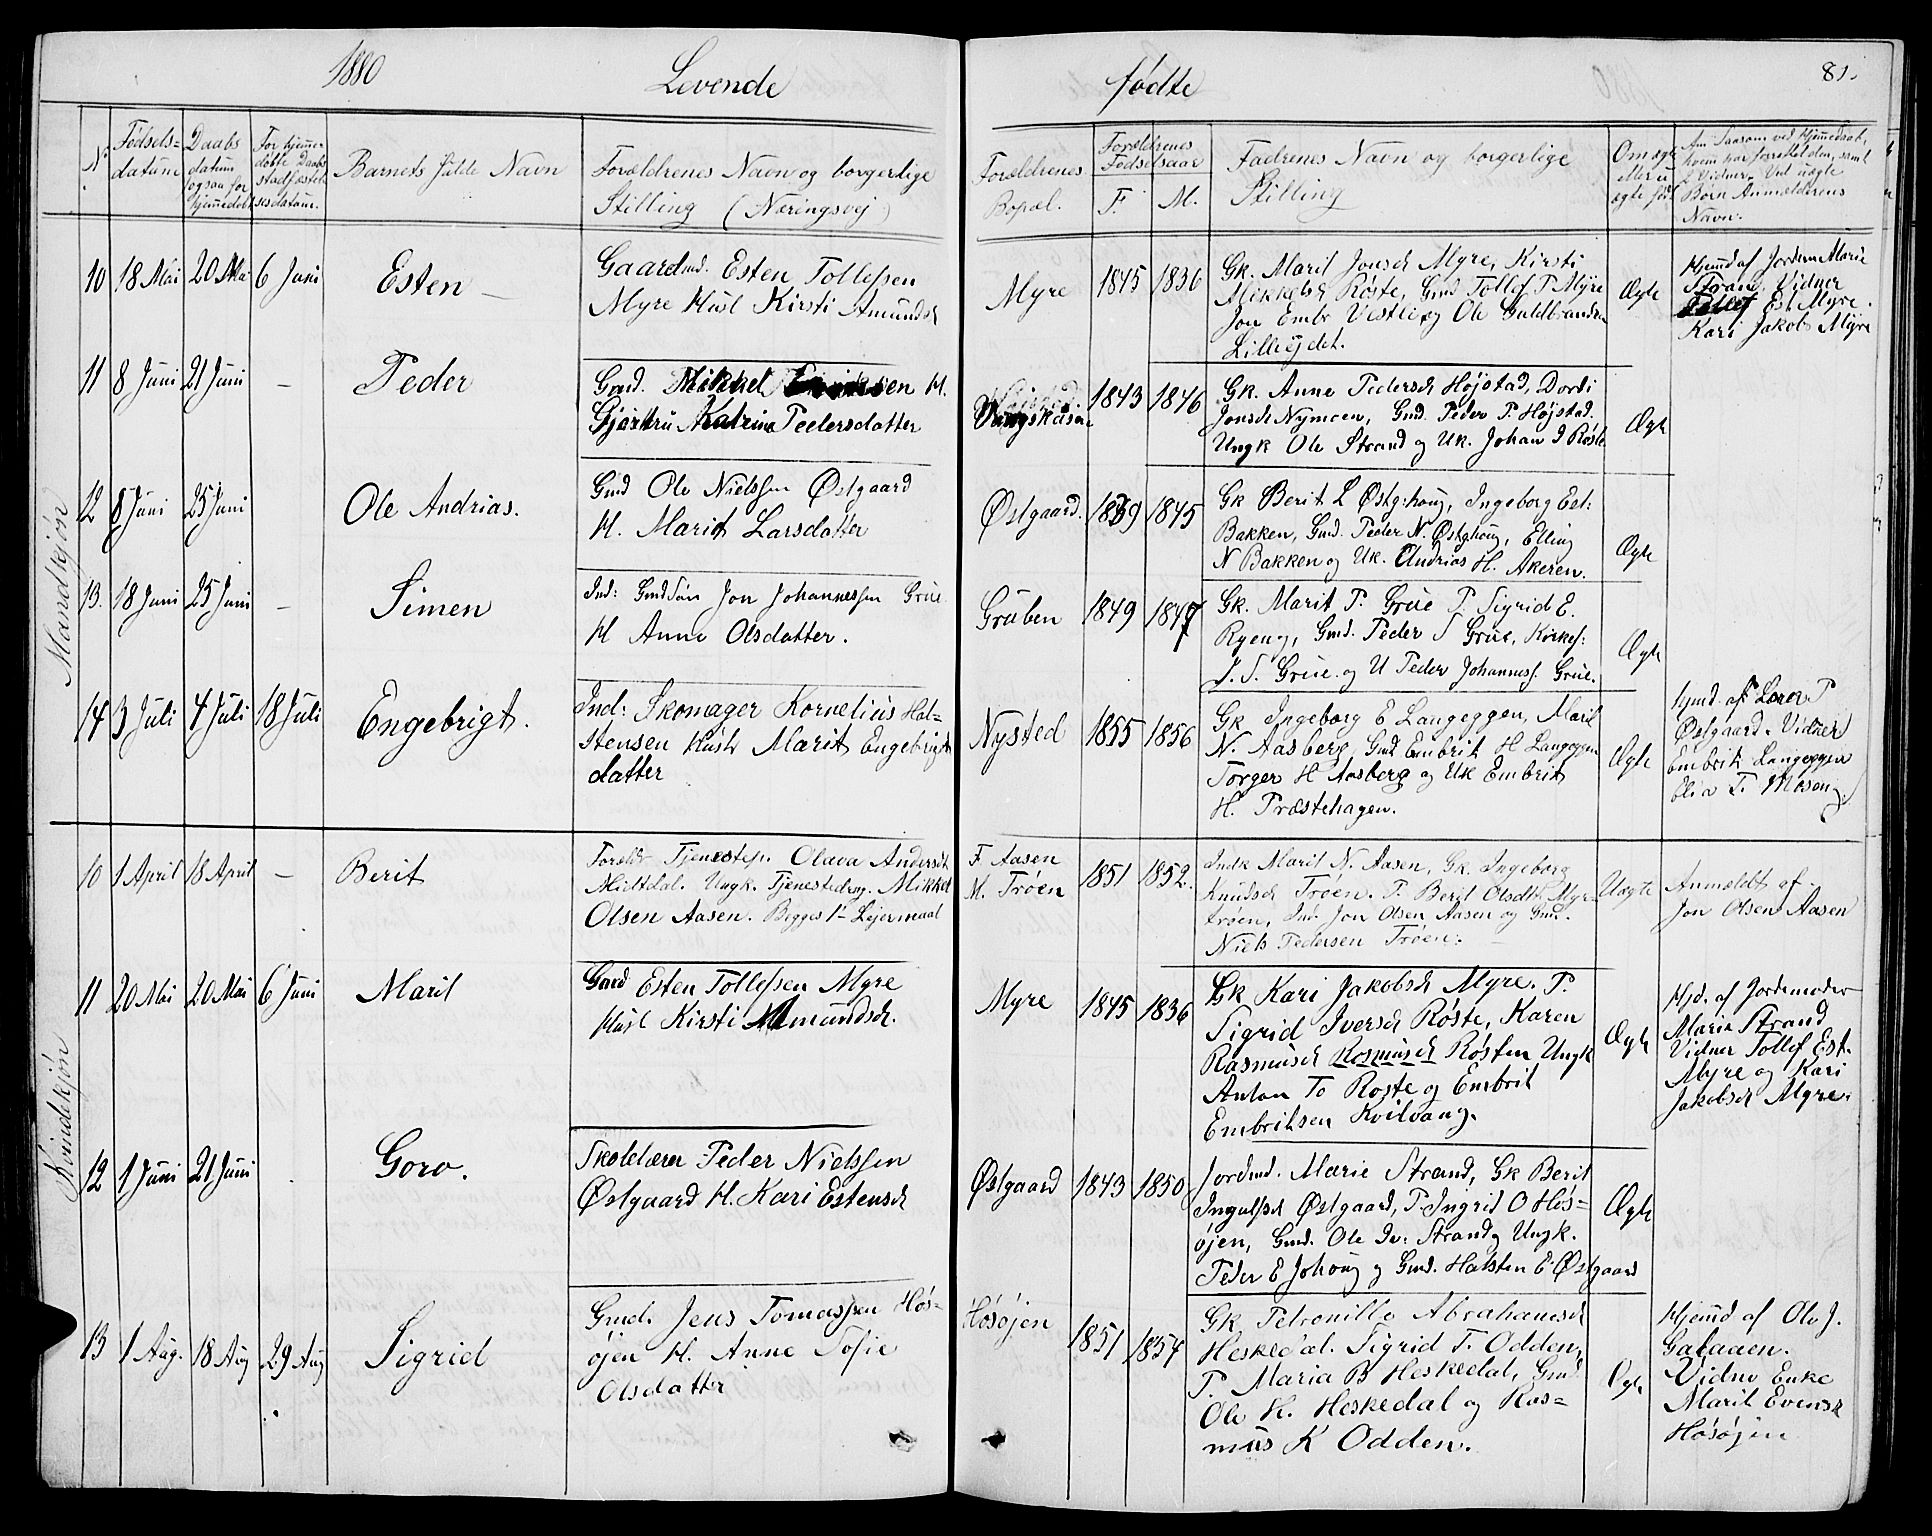 1880 Levende fødte 81.
N. Fødsels= datum Daabs datum ogsaa for hjemmedøbt For hjemme= døbte Daabs stadfæstel sesdatum. Barnets fulde Navn Forældrenes Navn og borgerlige Stilling (Næringsvej)
Forældrenes Bopæl. Forældrenes Fødselsaar F. M. Fadrenes Navn og borgerlige Stilling Om ægte eller u ægte født
Børn Anmelderens Navn.
Mandkjøn
10 18 Mai 20 Mai 6 Juni Esten —
Gaardmd. Esten Tollefsen
Myre Hust Kirsti Amundsd
Myre 1845 1836
Gk. Marit Jonsd Myre, Kirsti
Mikkelsd Røste, Gmd Tollef P Myre
Jon Embr Vestlie og Ole Guldbrandsen
Lilleøjdet.
Ægte
Hjemd af Jordem Marie
Strand. Vidner
Tollef Est Myre.
Kari Jakobs Myre
11 8 Juni 21 Juni — Peder
Gmd. Mikkel H.
Gjertru Katrine Pedersdatter
1843 1846
Gk. Anne Pedersd Højstad, Dorti
Jonsd Nymoen, Gmd. Peder P. Højstad.
Ungk Ole Strand og Uk. Johan I Røste
Ægte
12 8 Juni 25 Juni Ole Andrias.
Gmd Ole Nielssen Østgaard
H. Marit Larsdatter
Østgaard. 1839 1845
Gk Berit L Østghoug, Ingeborg Est:
Bakken, Gmd. Peder N. Østghoug, Elling
N Bakken og Uk. Andrias H. Akeren.
Ægte
13. 18 Juni 25 Juni — Simen
Ind: Gmd Søn Jon Johannessen Grue
H Anne Olsdatter.
Gruben 1849 1847
Gk. Marit P. Grue P. Sigrid E.
Ryeng, Gmd. Peder S Grue, Kirkes:
J. S. Grue og U Peder Johannes. Grue.
Ægte
14 3 Juli 4 Juli 18 Juli Engebrigt.
Ind: Skomager Kornelius Hal=
stensen Hustr Marit Engebrigts
datter
Nysted 1855 1856
Gk Ingeborg E Langeggen, Marit
N. Aasberg, Gmd Embrik H Langeggen
Torger H Aasberg og Uk Embrit
H. Præstehagen.
Ægte
Hjmd. af Lærer P
Østgaard. Vidner
Embrik Langeggen
Elia T. Moseng.
Kvindekjøn
10 1 April 18 April — Berit
Foreldr Tjenestep. Olava Andersdt
Mieltdal. Ungk. Tjenestedreng. Mikkel
Olsen Aasen. Begges 1ste Lejermaal
F Aasen
M. Trøen
1851 1852.
Indk Marit N. Aasen, Gk. Ingeborg
Knudsd Trøen. P. Berit Olsdtr Myr=
trøen, Ind. Jon Olsen Aasen og Gmd.
Niels Pedersen Trøen.
Uægte
Anmeldt af
Jon Olsen Aasen
11 20 Mai 20 Mai 6 Juni Marit
Gmd Esten Tollefsen Myre
Hust Kirsti Amundsd.
Myre 1845 1836
Gk Kari Jakobsd Myre. P.
Sigrid Iversd Røste, Karen
Rasmusd Rosmusd Røsten Ungk
Anton To Røste og Embrit
Embriksen Kvilvang.
Ægte
Hjd. af Jordemoder
Marie Strand
Vidner Tollef Est.
Myre og Kari
Jakobsd Myre.
12 1 Juni 21 Juni Goro.
Skolelærer Peder Nielssen
Østgaard H. Kari Estensd
Østgaard 1843 1850
Jordmd. Marie Strand, Gk Berit
Ingulfsd Østgaard, P. Ingrid O Høs=
øjen, Gmd. Ole Iv: Strand, Ungk.
Peder E Johoug og Gmd. Halsten E. Østgaard
Ægte
13 1 Aug. 18 Aug 29 Aug Sigrid
Gmd. Jens Tomassen Høs=
øjen H. Anne Sofie
Olsdatter
Høsøjen 1851 1854
Gk Petronille Abrahamsd
Heskedal. Sigrid T. Odden,
P. Maria B Heskedal, Gmd
Ole H. Heskedal og Ras=
mus K Odden.
Ægte
Hjemd af Ole J.
Galaaen.
Vidne Enke
Marit Evensd
Høsøjen